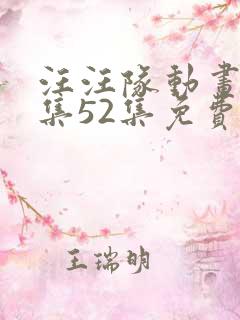 汪汪隊動畫
集52集免費
王瑞明